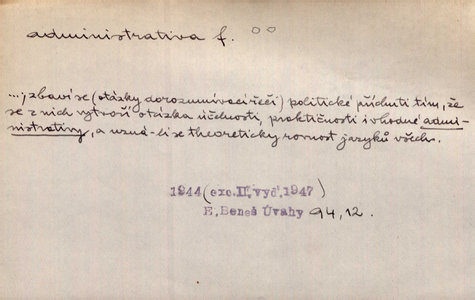 administrativa f. oo
...; zbaví se (otázky dorozumívací řeči) politické příchuti tím, že
se z nich vytvoří otázka účelnosti, praktičnosti i vhodné admi-
nistrativy, a uzná-li se theoreticky rovnost jazyků všech.
1944 (exc. II. vyd. 1947)
E. Beneš Úvahy 94, 12.